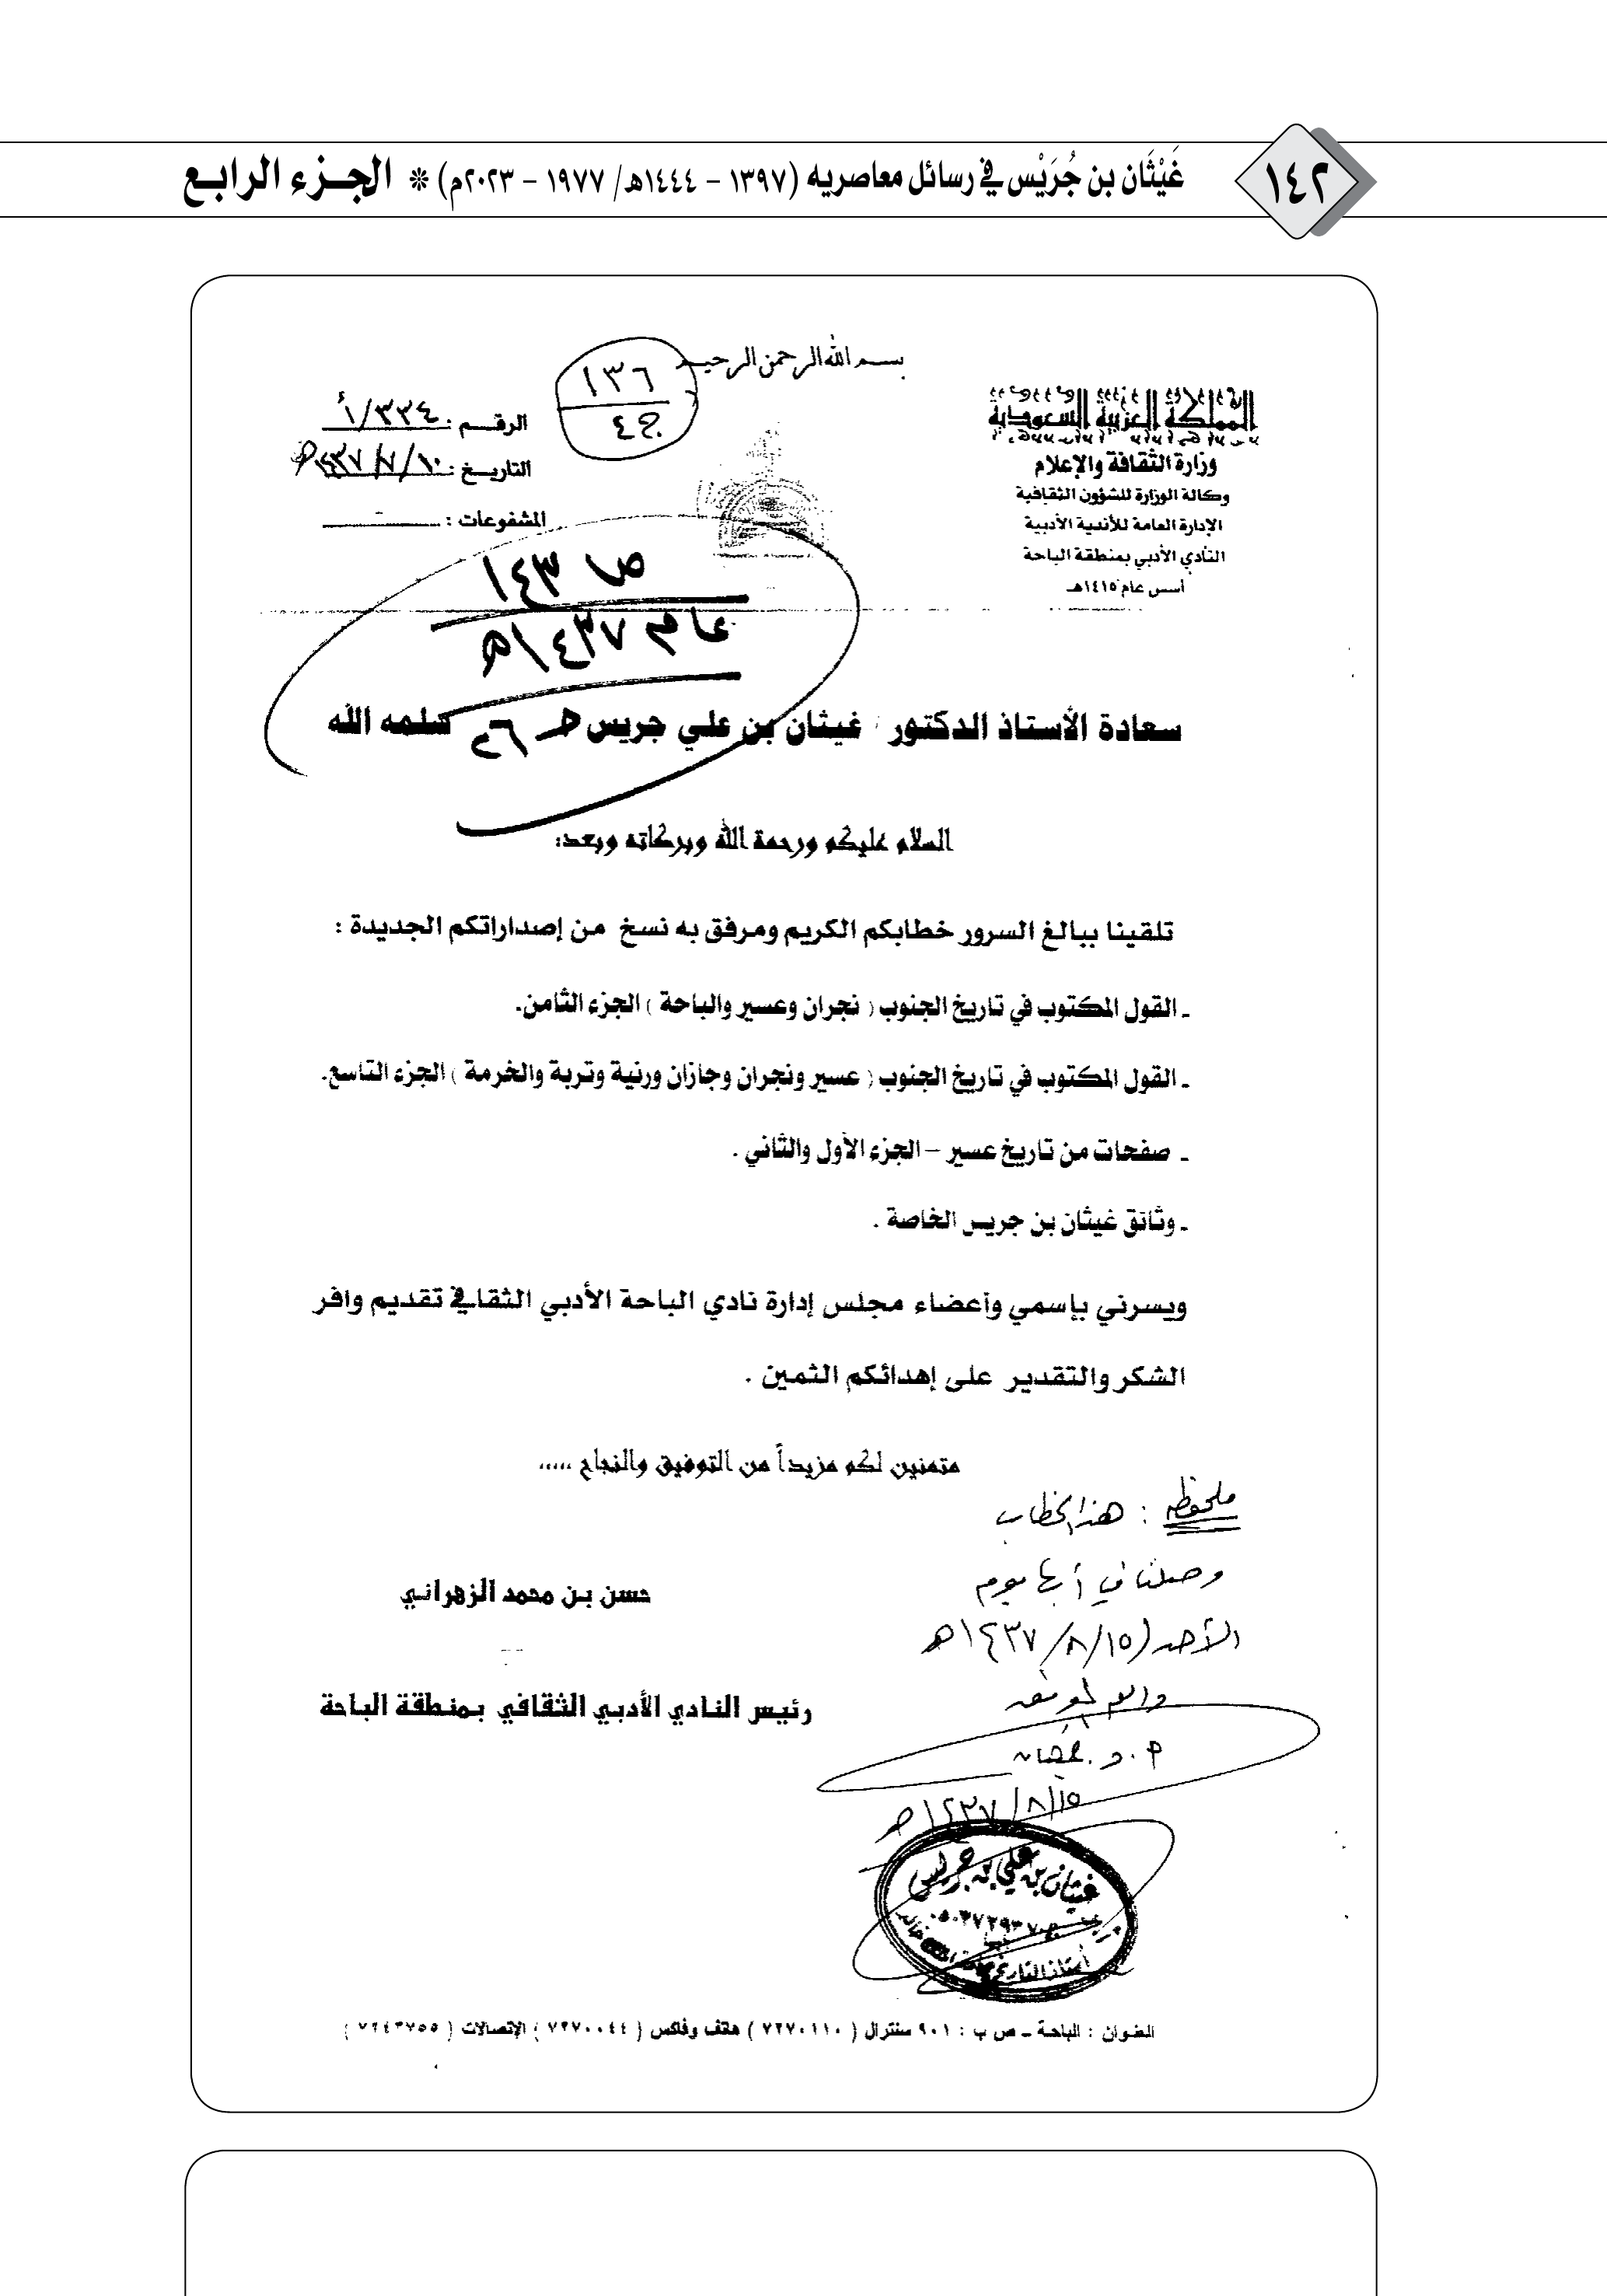 ١٤٢
غَيْثَان بن جُرَيْس في رسائل معاصريه (١٣٩٧ – ١٤٤٤هـ/ ١٩٧٧ – ٢٠٢٣م) * الجزء الرابع
بسم الله الرحمن الرحيم
١٣٦
ج٤
المملكة العربية السعودية
وزارة الثقافة والإعلام
وكالة الوزارة للشؤون الثقافية
الإدارة العامة للأندية الأدبية
النادي الأدبي بمنطقة الباحة
أسس عام ١٤١٥هـ
الرقم : ٣٣٤/أ
التاريخ : ١٠/٧/١٤٣٧هـ
المشفوعات :
سعادة الأستاذ الدكتور / غيثان بن علي جريس سلمه الله
السلام عليكم ورحمة الله وبركاته وبعد:
تلقينا ببالغ السرور خطابكم الكريم ومرفق به نسخ من إصداراتكم الجديدة :
ـ القول المكتوب في تاريخ الجنوب ( نجران وعسير والباحة ) الجزء الثامن.
ـ القول المكتوب في تاريخ الجنوب ( عسير ونجران وجازان ورنية وتربة والخرمة ) الجزء التاسع.
ـ صفحات من تاريخ عسير – الجزء الأول والثاني .
ـ وثائق غيثان بن جريس الخاصة .
ويسرني بإسمي وأعضاء مجلس إدارة نادي الباحة الأدبي الثقافي تقديم وافر
الشكر والتقدير على إهدائكم الثمين .
متمنين لكم مزيداً من التوفيق والنجاح .....
حسن بن محمد الزهراني
رئيس النادي الأدبي الثقافي بمنطقة الباحة
ملحوظة : هذا الخطاب
وصلنا في أبها يوم
الأحد (١٥/٨/١٤٣٧هـ
والله الموفق
أ.د. غيثان
١٥/٨/١٤٣٧هـ
غيثان بن علي بن جريس
أستاذ التاريخ
العنوان : الباحة ـ ص ب : ٩٠١ سنترال ( ٧٢٧٠١١٠ ) هاتف وفاكس ( ٧٢٧٠٠٤٤ ) الإتصالات ( ٧٢٤٣٧٥٥ )